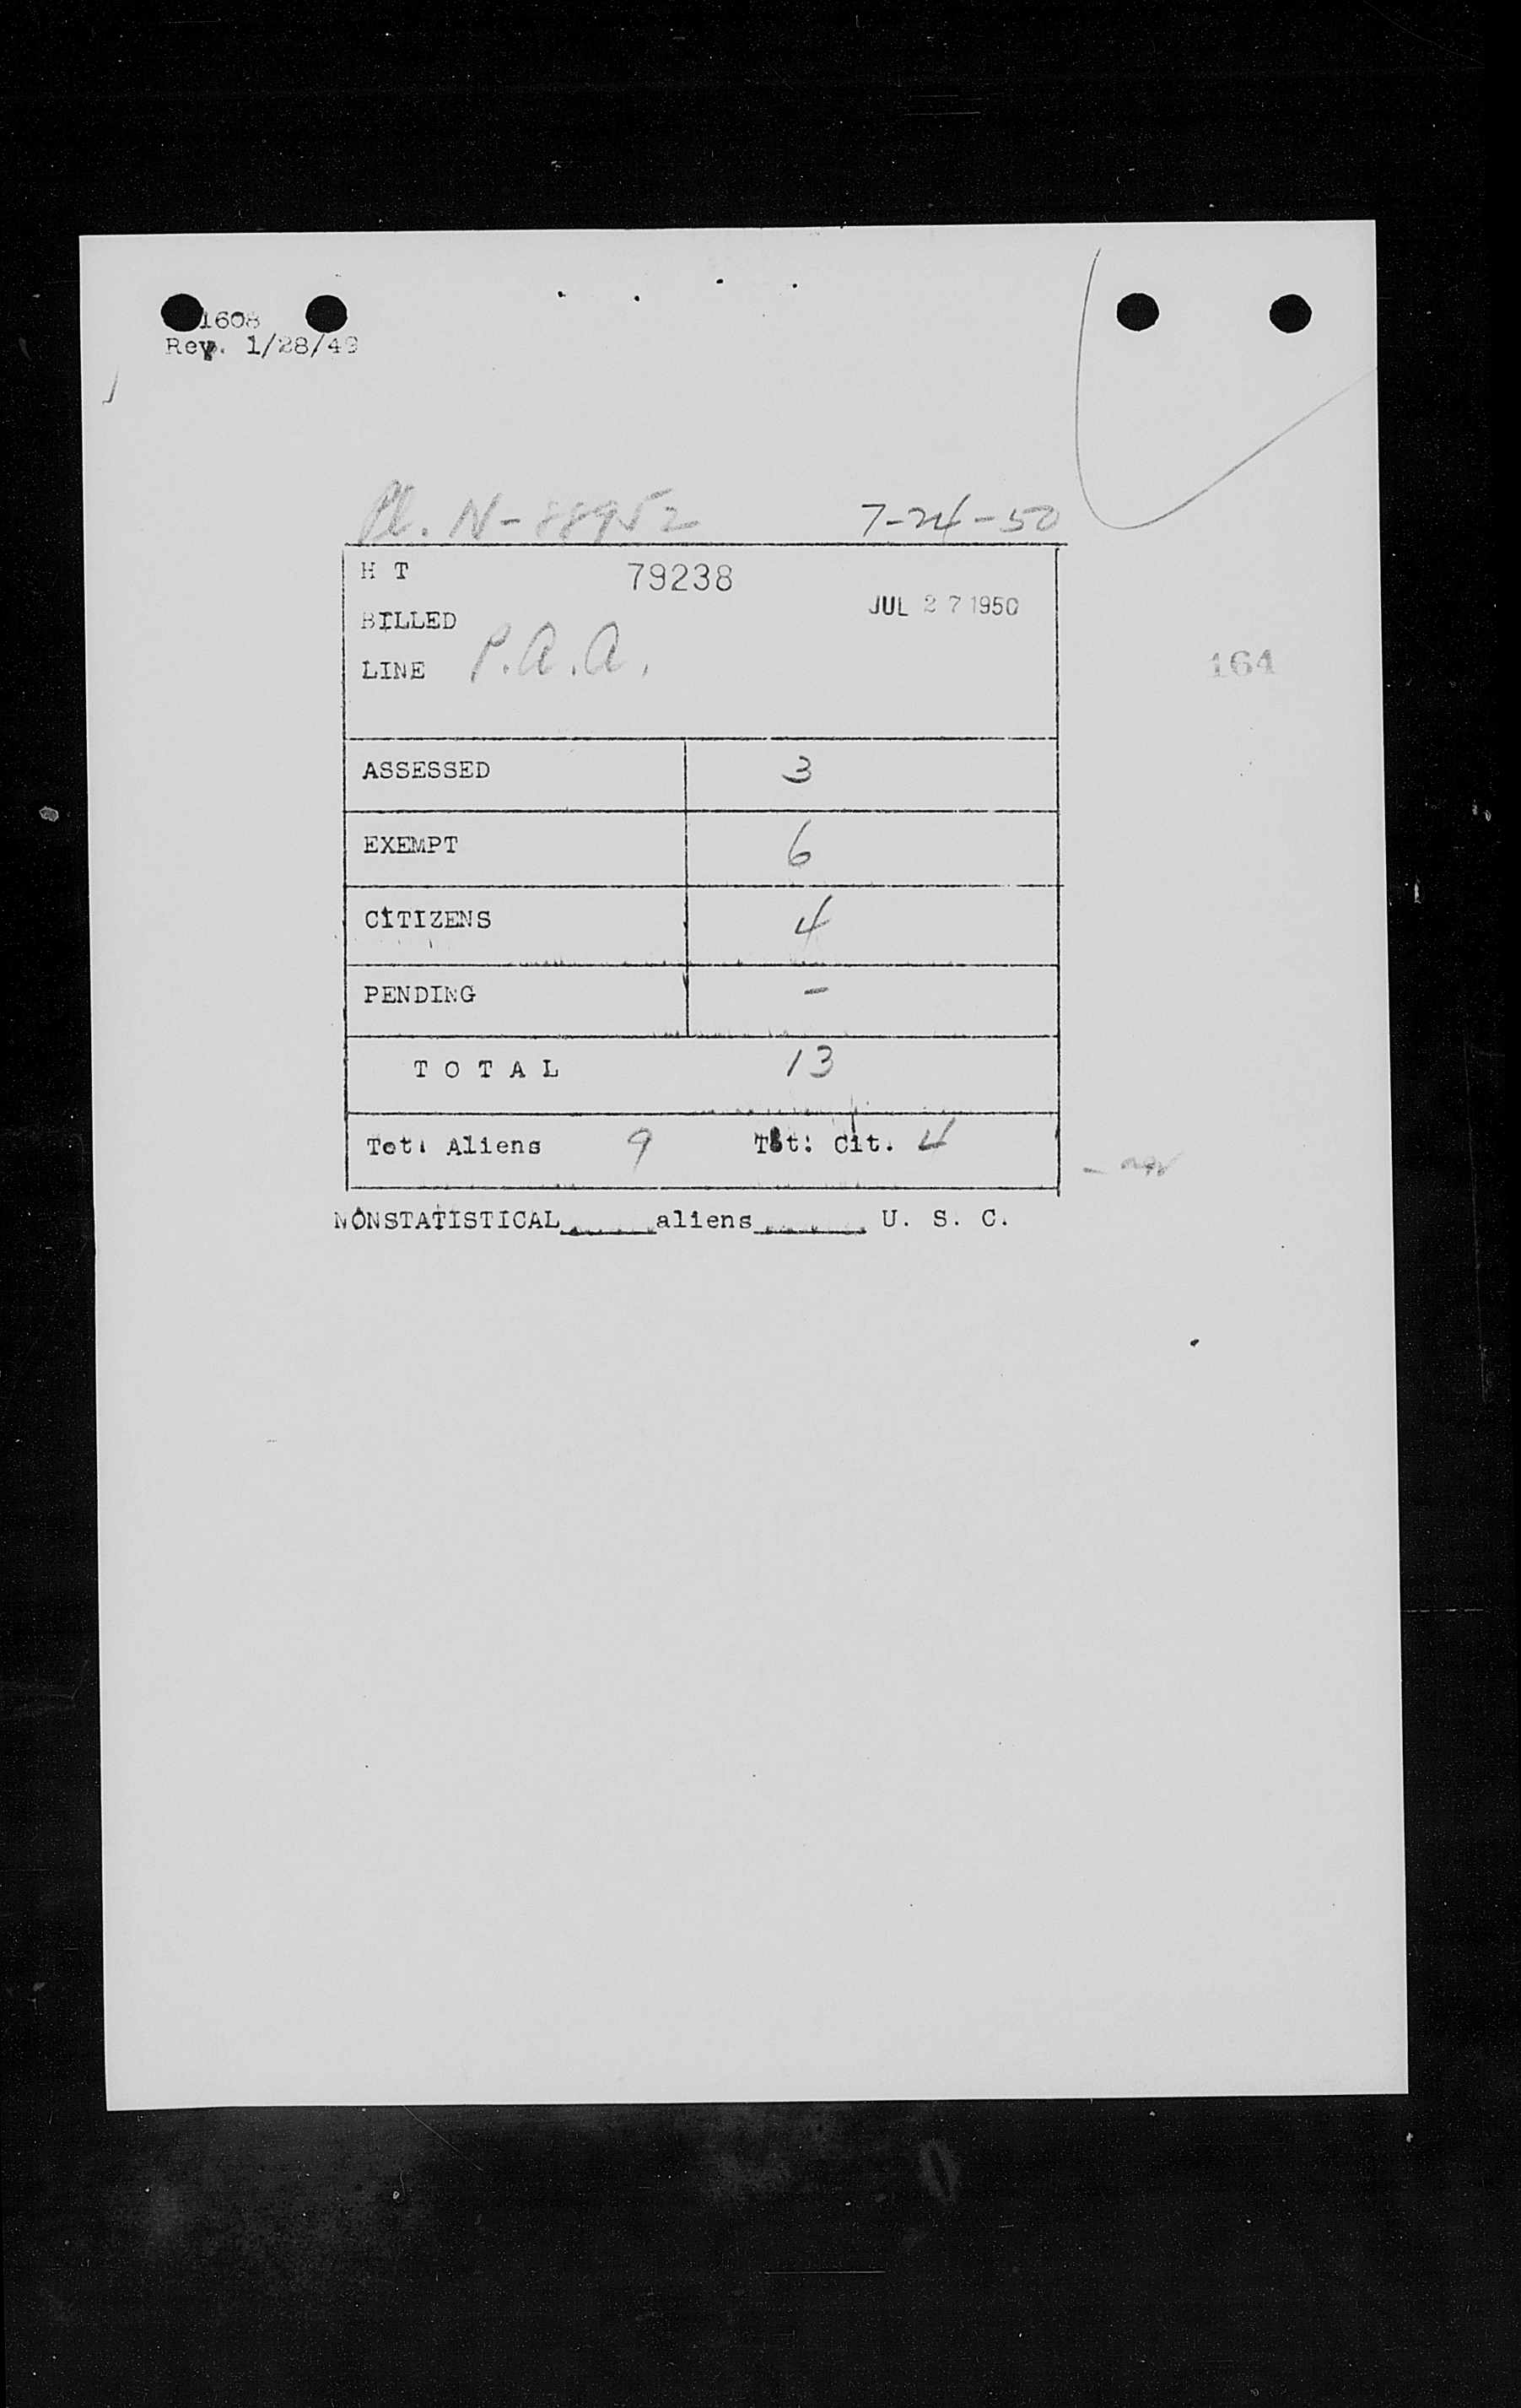 1608
Rev. 1/28/49
Pl. N-88952 7-24-50
H T 79238
JUL 27 1950
BILLED
LINE P.A.A.
164
ASSESSED 3
EXEMPT 6
CITIZENS 4
PENDING -
TOTAL 13
Tot: Aliens 9 Tot: Cit. 4
NONSTATISTICAL_____aliens______ U. S. C.